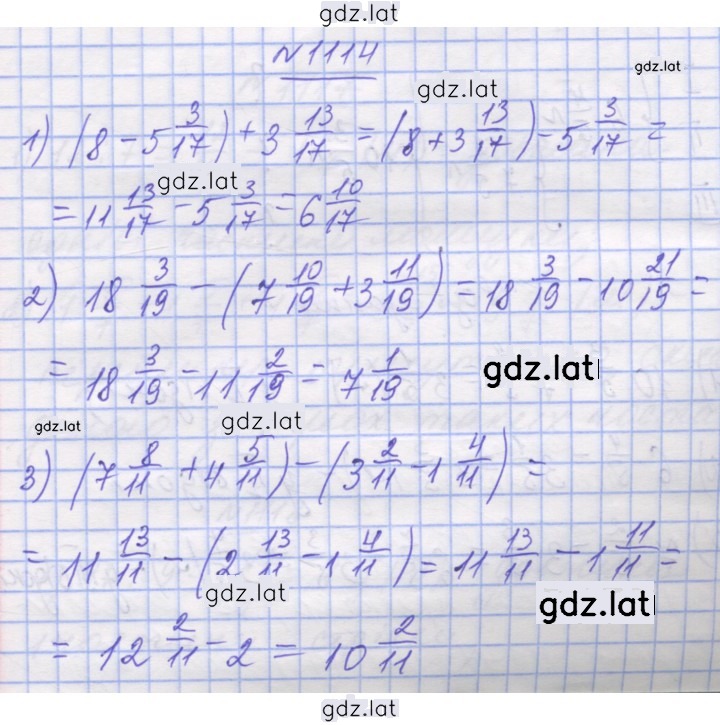 gdz.lat
№1114
gdz.lat
gdz.lat
1) (8 - 5 3/17) + 3 13/17 = (8 + 3 13/17) - 5 3/17 =
gdz.lat
= 11 13/17 - 5 3/17 = 6 10/17
2) 18 3/19 - (7 10/19 + 3 11/19) = 18 3/19 - 10 21/19 =
= 18 3/19 - 11 2/19 = 7 1/19
gdz.lat
gdz.lat
gdz.lat
3) (7 8/11 + 4 5/11) - (3 2/11 - 1 4/11) =
= 11 13/11 - (2 13/11 - 1 4/11) = 11 13/11 - 1 11/11 =
gdz.lat
gdz.lat
= 12 2/11 - 2 = 10 2/11
gdz.lat